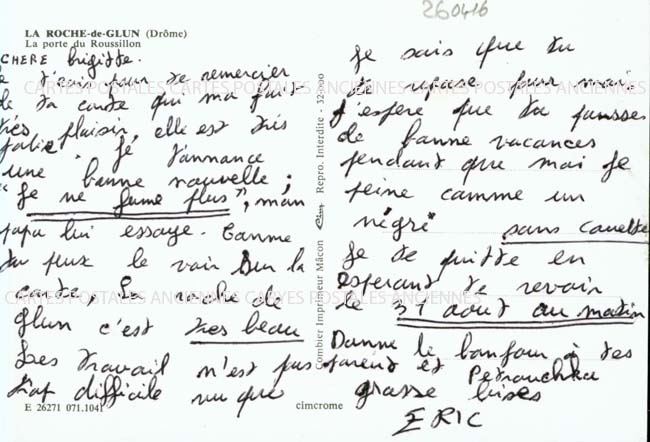 260416
LA ROCHE-de-GLUN (Drôme)
La porte du Roussillon
CHERE Brigitte.
Je t'ecris pour te remercier
de ta carte qui ma fait
très plaisir, elle est très
jolie. Je t'annonce
une bonne nouvelle ;
"Je ne fume plus", mon
papa lui essaye. Comme
tu peux le voir sur la
carte, La roche de
Glun c'est très beau
Les travail n'est pas
trop difficile vu que
E 26271 071.1041
cimcrome
Combier Imprimeur Mâcon Cim Repro. Interdite - 32.000
Je sais que tu
te repose pour moi
j'espere que tu passes
de bonne vacances
pendant que moi je
peine comme un
nègre sans couette
Je te quitte en
esperant te revoir
le 31 aout au matin
Donne le bonjour à tes
parent et Petrouchka
grosse bises
ERIC
CARTES POSTALES ANCIENNES CARTES POSTALES ANCIENNES
CARTES POSTALES ANCIENNES CARTES POSTALES ANCIENNES